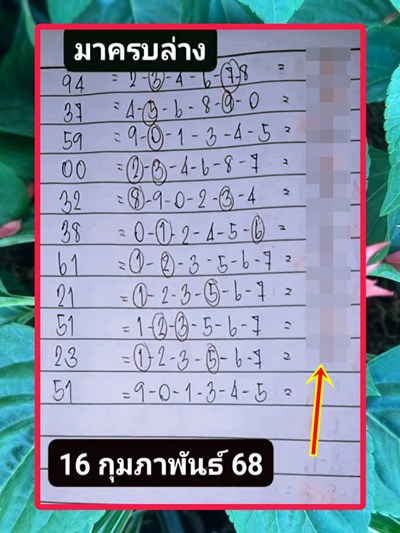 มาครบล่าง
94 = 2-3-4-6-7-8 =
37 = 4-5-6-8-9-0 =
59 = 9-0-1-3-4-5 =
00 = 2-3-4-6-8-7 =
32 = 8-9-0-2-3-4 =
38 = 0-1-2-4-5-6 =
61 = 1-2-3-5-6-7 =
21 = 1-2-3-5-6-7 =
51 = 1-2-3-5-6-7 =
23 = 1-2-3-5-6-7 =
51 = 9-0-1-3-4-5 =
16 กุมภาพันธ์ 68